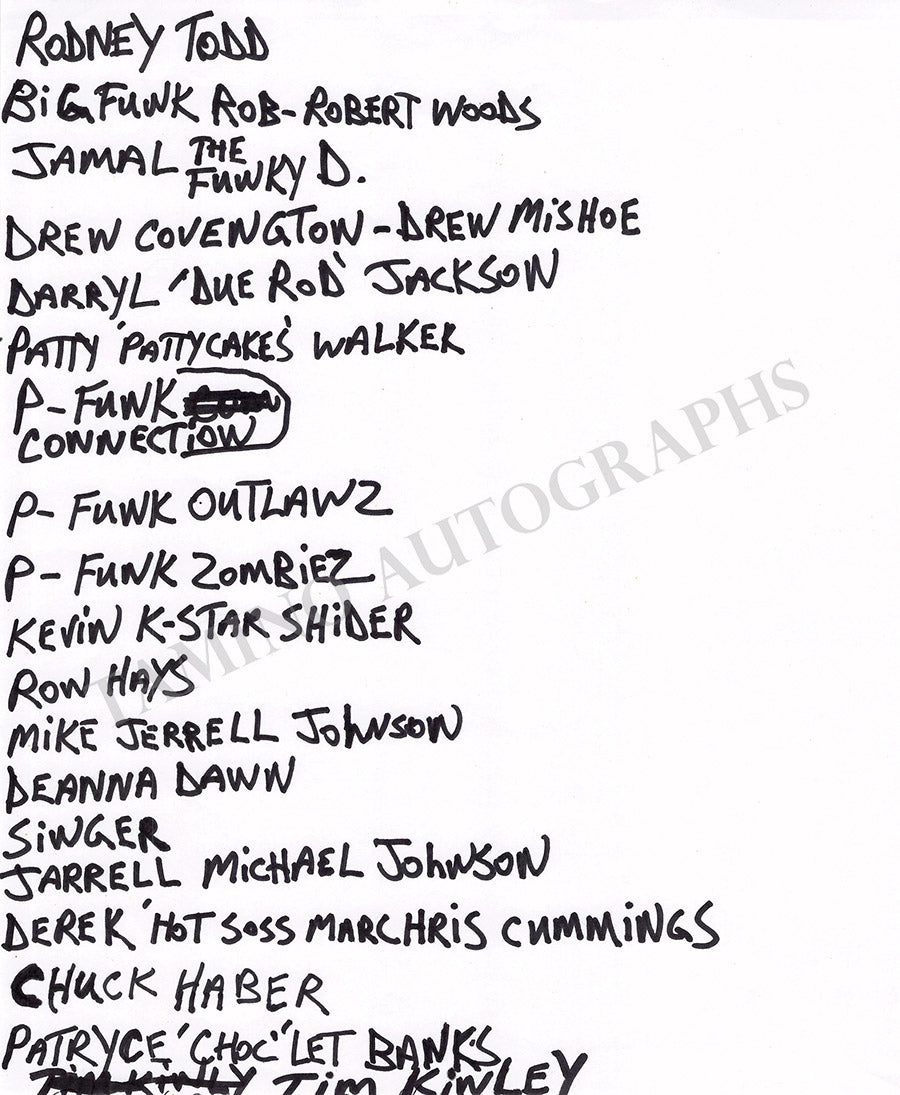 RODNEY TODD
BiG FUNK ROB-ROBERT WOODS
JAMAL THE FUNKY D.
DREW COVENGTON-DREW MiSHOE
DARRYL 'DUE ROD' JACKSON
PATTY 'PATTYCAKES' WALKER
P-FUNK
CONNECTiON
P-FUNK OUTLAWZ
P-FUNK ZOMBiEZ
KEViN K-STAR SHiDER
RON HAYS
MiKE JERRELL JohNSON
DEANNA DAWN
SiNGER
JARRELL MiCHAEL JohNSON
DEREK 'HOT SOSS MARCHRiS CUMMiNGS
CHUCK HABER
PATRYCE 'CHOC' 'LET BANKS
TiM KiNLEY
TAMINO AUTOGRAPHS